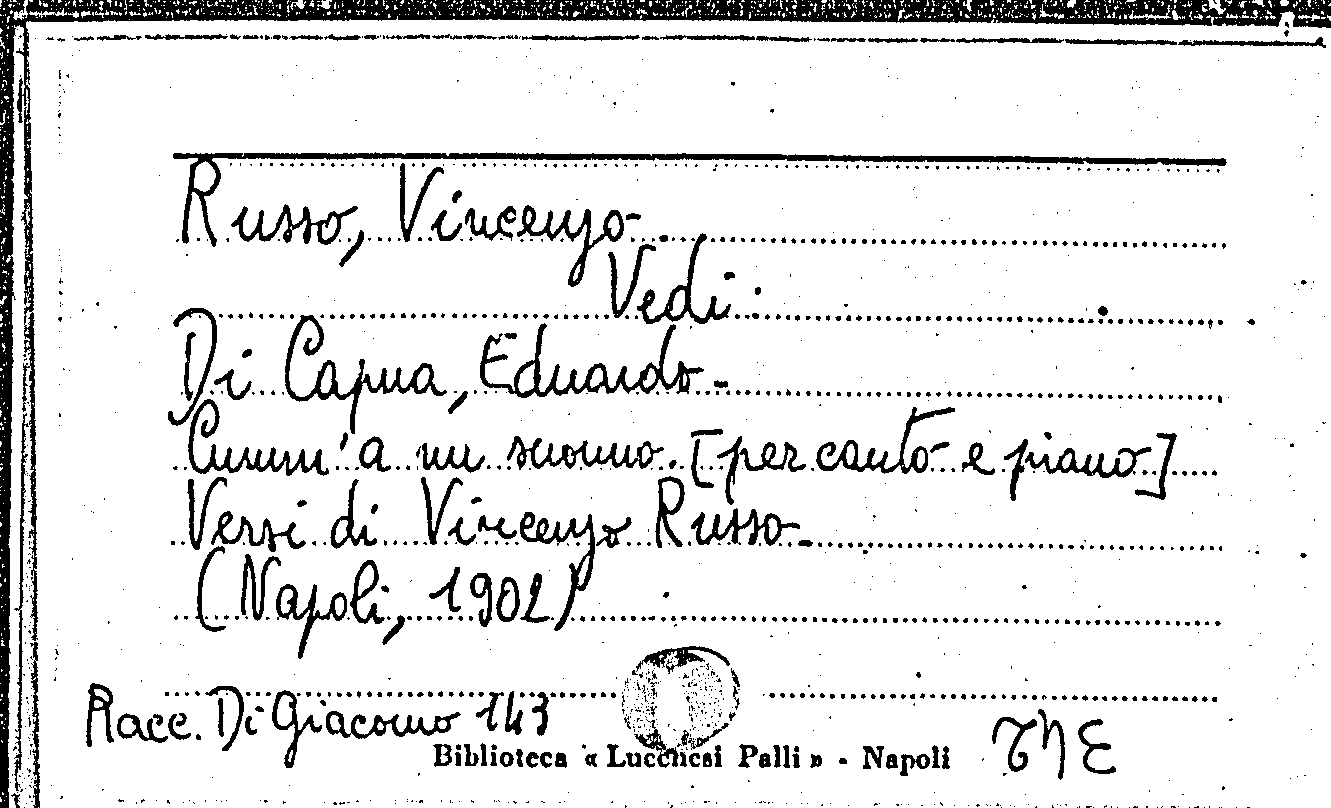 Russo, Vincenzo.
Vedi:
Di Capua, Eduardo-
Cumm'a nu suonno. [per canto e piano]
Versi di Vincenzo Russo-
(Napoli, 1902)
Racc. Di Giacomo 143
Biblioteca « Lucchesi Palli » - Napoli